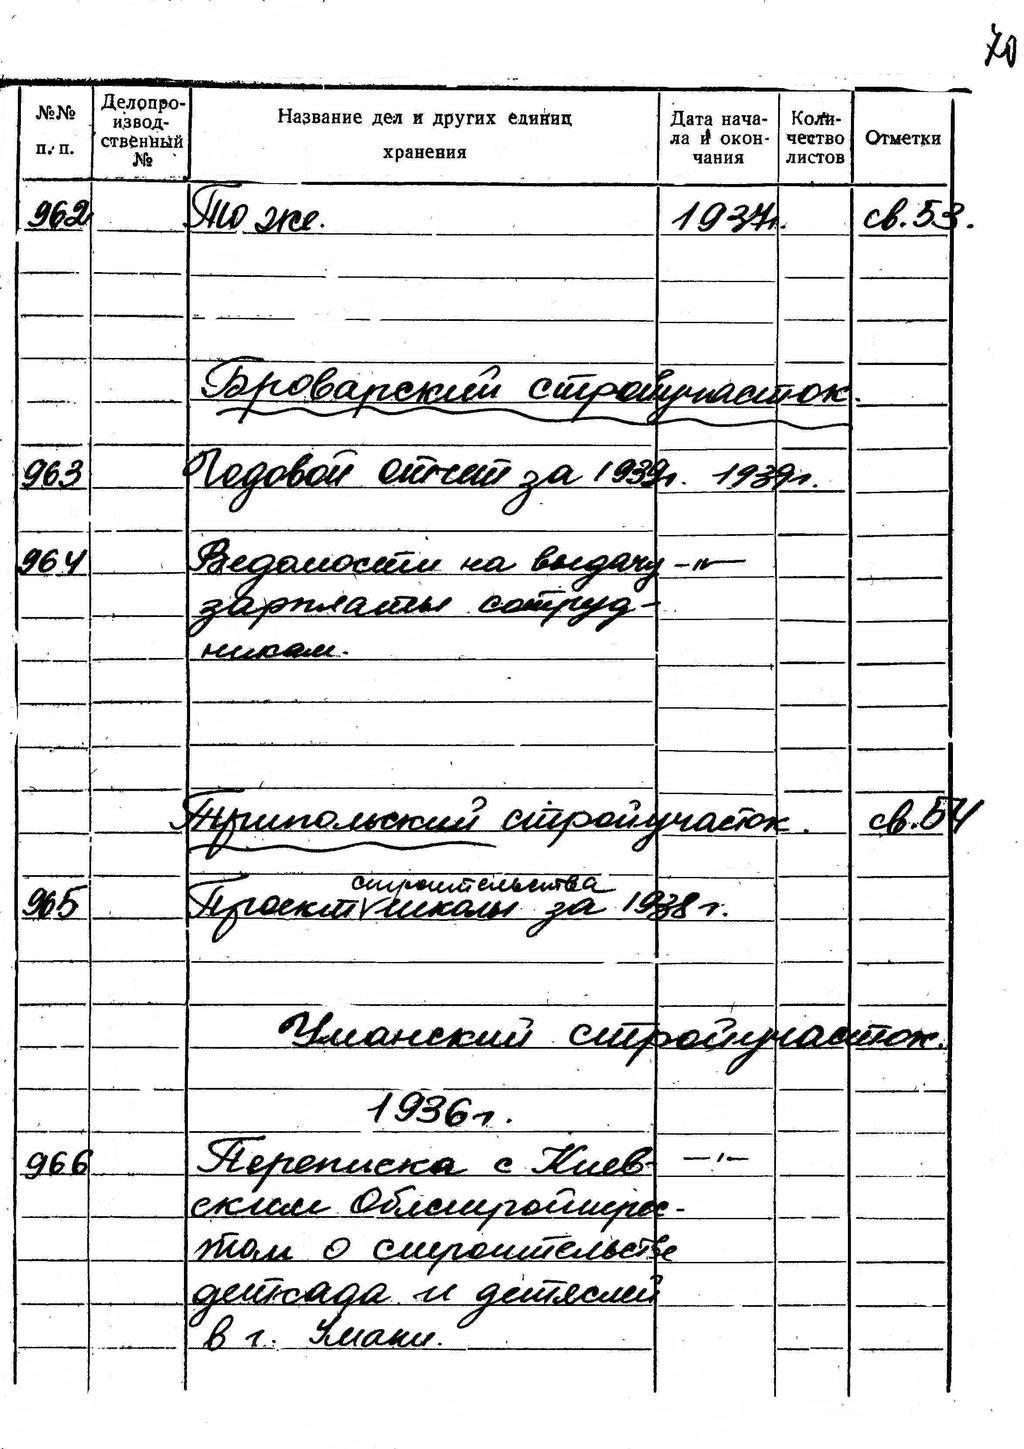 70
№№ п. п.
Делопроизводственный №
Название дел и других единиц хранения
Дата начала и окончания
Количество листов
Отметки
962 То же. 1937г. св. 53.
Броварский стройучасток.
963 Годовой отчет за 1939г. 1939г.
964 Ведомости на выдачу -"-
зарплаты сотруд-
никам.
Трипольский стройучасток. св. 54
строительства
965 Проект школы за 1938г.
Уманский стройучасток.
1936г.
966 Переписка с Киев- -"-
ским Облстройтрес-
том о строительстве
детсада и детяслей
в г. Умани.